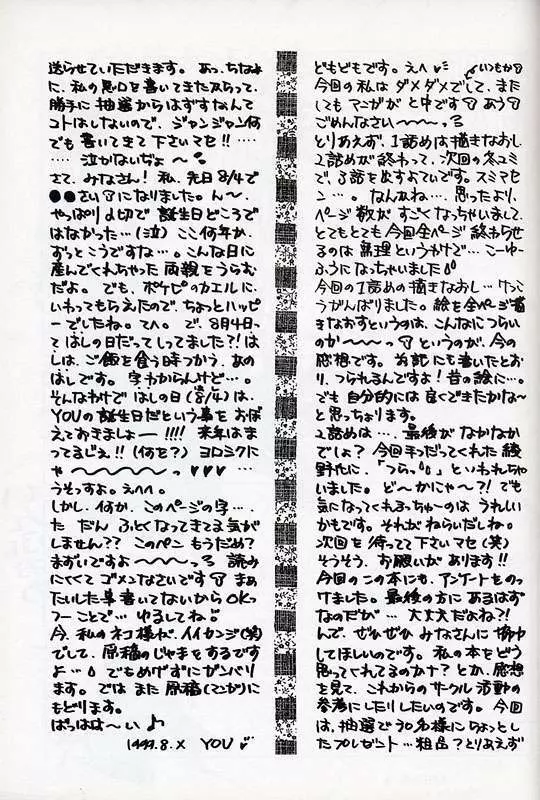 どもどもです。えへ いつもか
今回の私は ダメダメでして、また
しても マンガが と中です あう
ごめんなさい〜〜〜っ
とりあえず、1話めは描きなおし、
2話めが終わって、次回の冬コミ
で、3話を出すよていです。スミマセ
ン…。なんかね… 思ったより、
ページ数が すごくなっちゃいまして、
とてもとても 今回全ページ 終わらせ
るのは無理というわけで… こーゆー
ふうになっちゃいました
今回の1話めの描きなおし… けっこ
うがんばりました。絵を全ページ描
きなおすというのは、こんなにつらい
のか〜〜〜っ というのが、今の
感想です。 にも書いたとお
り、つられるんですよ!昔の絵に…。
でも 自分的には 良くできたかな〜
と思っちょります。
2話めは… 最後がなかなか
でしょ?今回手だってくれた綾
野代に、「つらっ」といわれちゃ
いました。ど〜かにゃ〜?! でも
気になってくれるっちゅーのは うれしい
かもです。それが ねらいだしね。
次回を 待ってて 下さいマセ(笑)
そうそう、お願いが あります!!
今回の この本にも、アンケートを のっ
けました。最後の方に あるはず
なのだが … 大丈夫だよね?!
んで、ぜひぜひ みなさんに 協力
してほしいのです。私の本をどう
思ってくれてるのかナ?とか、感想
を見て、これからのサークル活動の
参考にしたりしたいのです。今回
は、抽選で30名様に ちょっとし
たプレゼント… 粗品?とりあえず
送らせていただきます。あっ、ちなみ
に、私の悪口を書いてきたからって、
勝手に 抽選からはずすなんて
コトはしないので、ジャンジャン何
でも 書いてきて 下さいマセ!! …
…… 泣かないぢょ〜
さて、みなさん! 私、先日8/4で
●●さいになりました。ん〜、
やっぱり〆切で 誕生日どころで
はなかった…(泣) ここ何年か、
ずっとこうですな…。こんな日に
産んでくれちゃった 両親をうらむ
だよ。でも、ポケピのカエルに、
いわってもらえたので、ちょっとハッピ
ーでしたね。てへ。で、8月4日っ
て はしの日だってしってました?!は
しは、ご飯を食う時つかう、あの
はしです。字わからんけど…。
そんなわけで はしの日(8/4)は、
YOUの誕生日だという事を おぼ
えておきましょー!!!! 来年はま
ってるじぇ!!(何を?) ヨロシクに
ゃ〜〜〜〜〜〜っ ♥♥♥ …
うそっすよ。えへへ。
しかし、何か、このページの字…、
だんだん ふとくなってきてる気が
しません?? このペン もうだめ?
まずいですよ〜〜〜っ 読み
にくくて ゴメンなさいです まぁ
たいした事書いてないからOKっ
つーことで… ゆるしてね
今、私のネコ様が、イイカンジ(笑)
でして、原稿のじゃまをするです
よ… でもめげずにガンバリ
ます。では また 原稿(マンガ)に
もどります。
ばっはは〜い♪
1997.8.X YOU